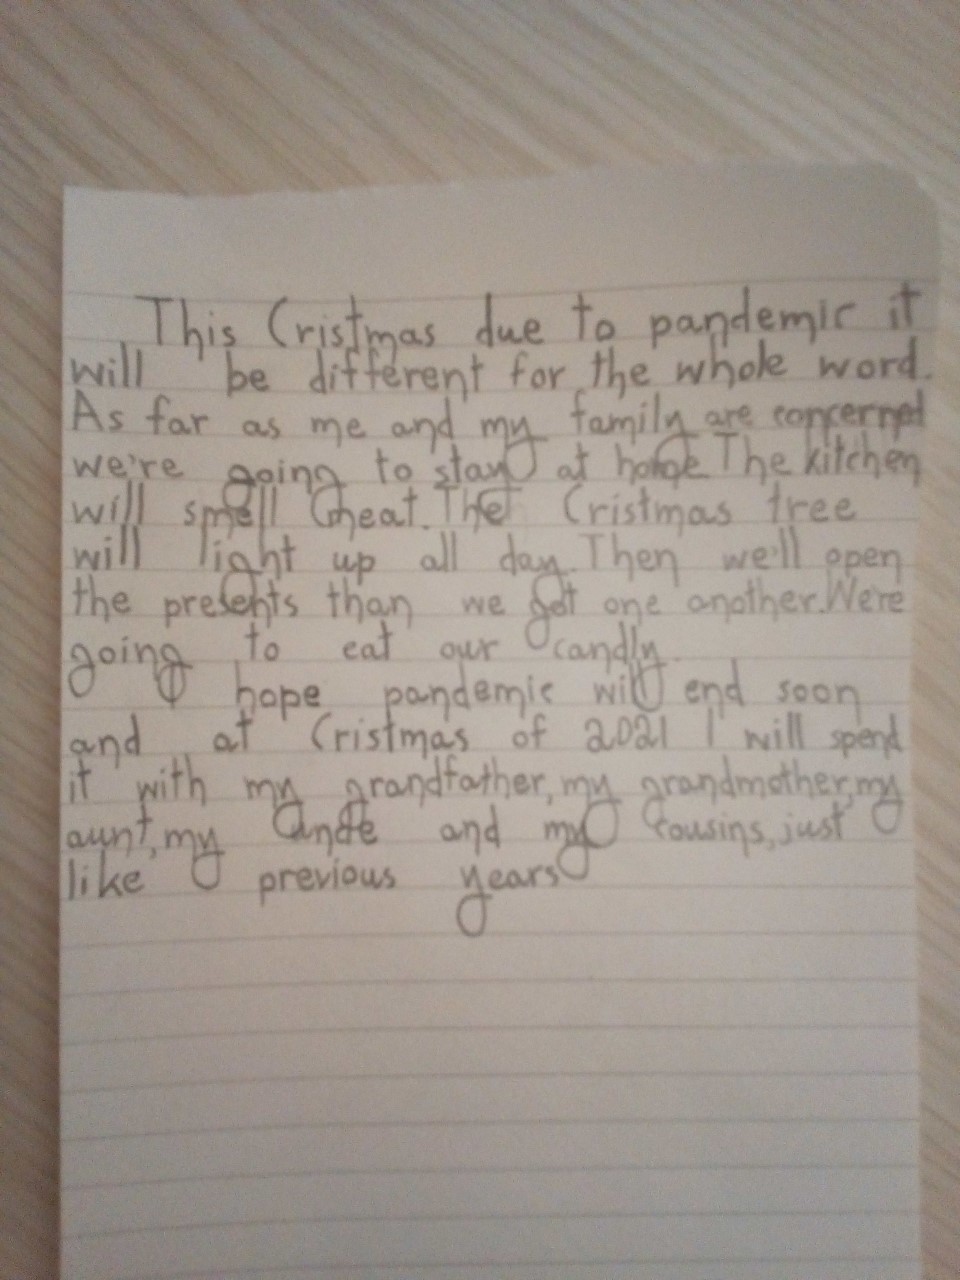 This Cristmas due to pandemic it
will be different for the whole word.
As far as me and my family are concerned
we're going to stay at home The kitchen
will smell Great. The Cristmas tree
will light up all day. Then we'll open
the presents than we get one another. We're
going to eat our candly.
I hope pandemic will end soon
and at Cristmas of 2021 I will spend
it with my grandfather, my grandmother, my
aunt, my uncle and my cousins, just
like previous years